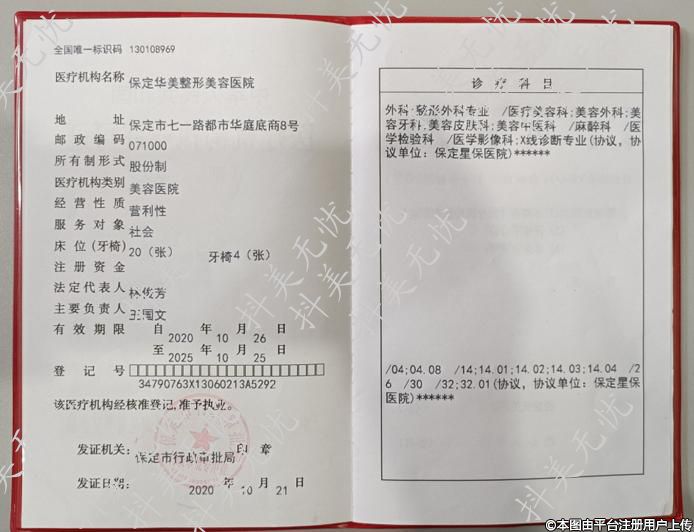 全国唯一标识码 130108969
医疗机构名称 保定华美整形美容医院
地 址 保定市七一路都市华庭底商8号
邮政编码 071000
所有制形式 股份制
医疗机构类别 美容医院
经营性质 营利性
服务对象 社会
床位(牙椅) 20（张） 牙椅4（张）
注册资金
法定代表人 林俊芳
主要负责人 王国文
有效期限 自
2020 年 10 月 26 日
至
2025 年 10 月 25 日
登记号
34790763X13060213A5292
该医疗机构经核准登记,准予执业。
发证机关: 保定市行政审批局 印 章
发证日期: 2020 年 10 月 21 日
诊疗科目
外科;整形外科专业 /医疗美容科;美容外科;美
容牙科;美容皮肤科;美容中医科 /麻醉科 /医
学检验科 /医学影像科;X线诊断专业(协议, 协
议单位: 保定星保医院)******
/04;04.08 /14;14.01;14.02;14.03;14.04 /2
6 /30 /32;32.01(协议, 协议单位: 保定星保
医院)******
抖美无忧
©本图由平台注册用户上传